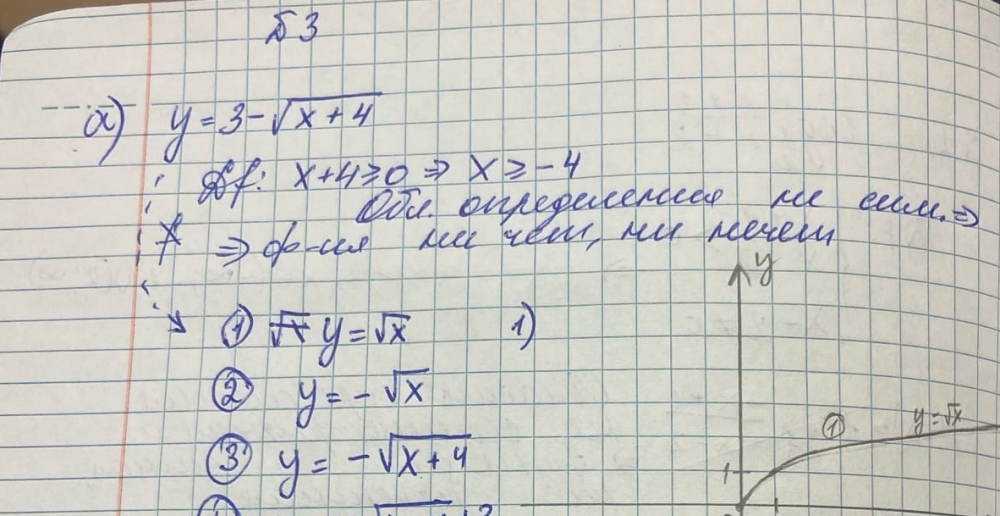 Б 3
а) y = 3 - √(x+4)
Df: x+4 ≥ 0 ⇒ x ≥ -4
Обл. определения не сим. ⇒
⇒ ф-ия ни чет, ни нечет
① y = √x 1)
② y = -√x
③ y = -√(x+4)
y
① y = √x
1